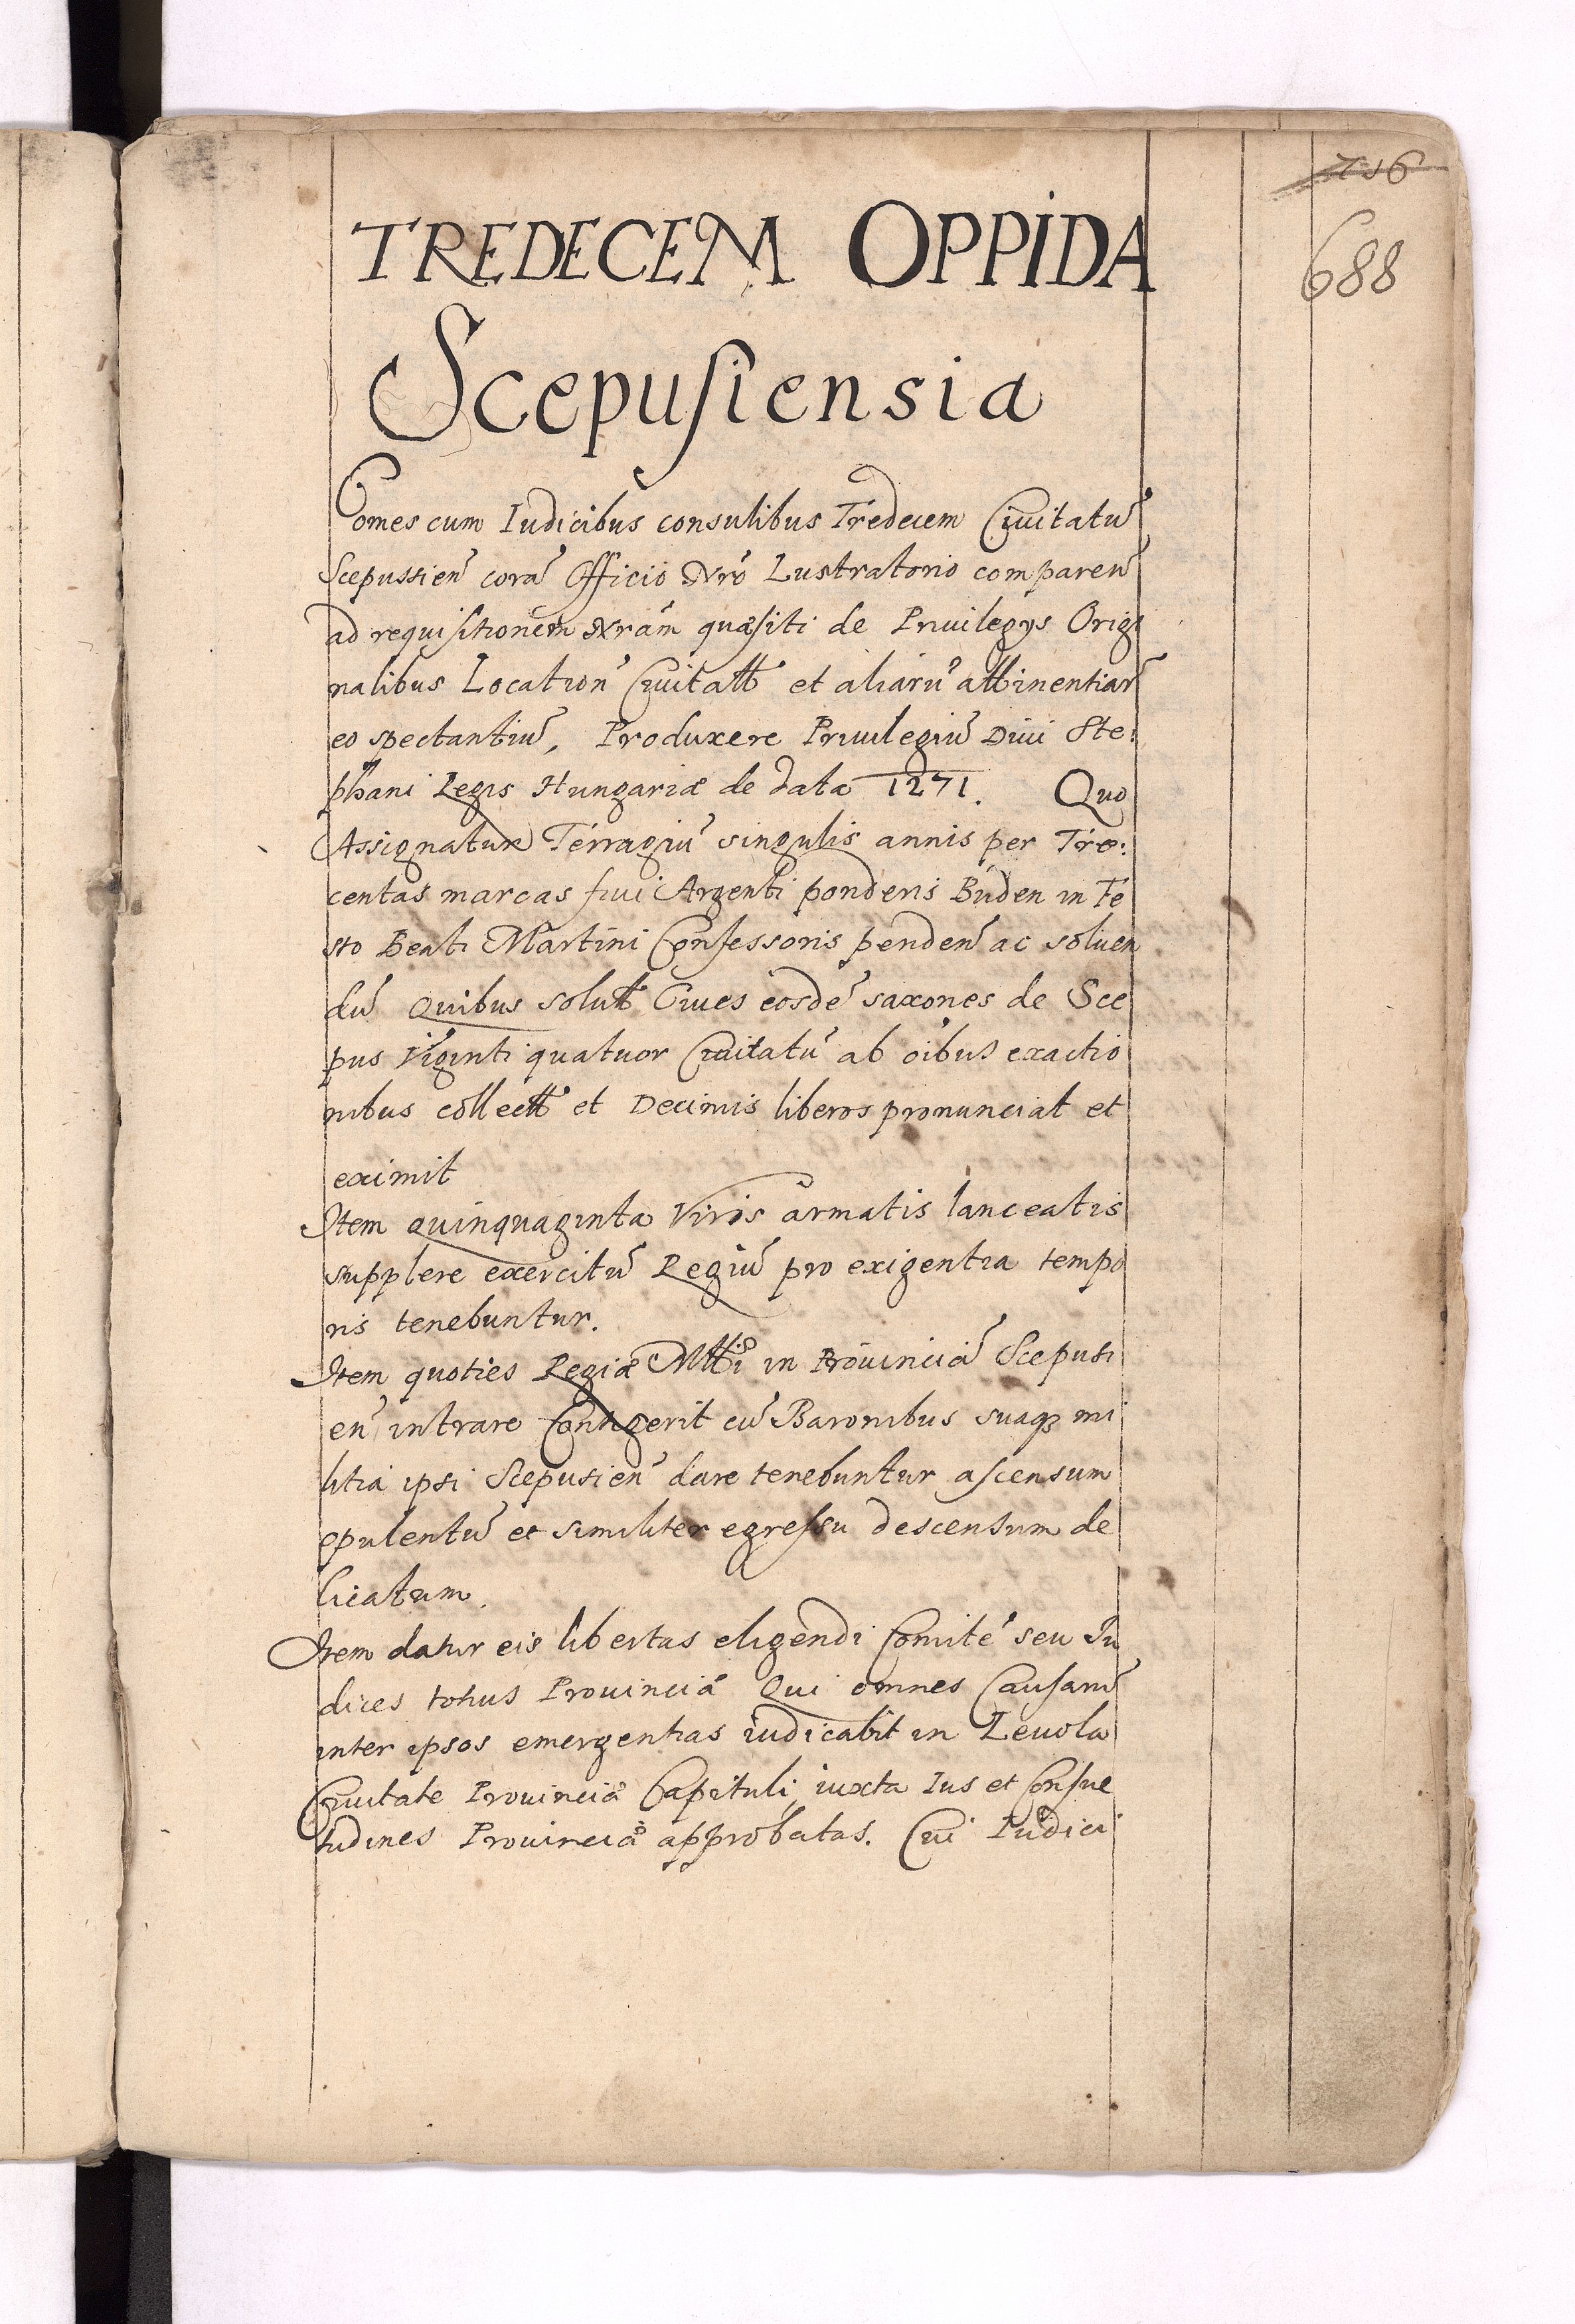 716
688
TREDECEM OPPIDA
Scepuſiensia
Comes cum Iudicibus consulibus Tredecem Ciuitatu᷃
Scepussien᷃ cora᷃ Officio Nro᷃ Lustratorio comparen᷃
ad requiſitionem Nram᷃ quæſiti de Priuilegys Origi
nalibus Location᷃ Ciuitatt᷃ et aliaru᷃ attinentiar᷃
eo spectantiu᷃, Produxere Priuilegiu᷃ Diui Ste:
phani Regis Hungariæ de data 1271. Quo
Assignatur Terragiu᷃ singulis annis per Tre:
centas marcas fini Argenti ponderis Buden in Fe
sto Beati Martini Confessoris penden᷃ ac soluen
du᷃ Quibus solutt᷃ Ciues eosde᷃ saxones de Sce
pus Viginti quatuor Ciuitatu᷃ ab oi᷃bus exactio
nibus collectt᷃ et Decimis liberos pronunciat et
eximit
Item quinquaginta Viris armatis lanceatis
supplere exercitu᷃ Regiu᷃ pro exigentia tempo
ris tenebuntur.
Item quoties Regiæ Mtti in Prouincia᷃ Scepusi
en᷃ intrare Contigerit cu᷃ Baronibus suaqꝫ mi
litia ipsi Scepusien᷃ dare tenebuntur aſcensum
opulentu᷃ et similiter egreſsu descensum de
licatum.
Item datur eis libertas eligendi Comite᷃ seu Iu
dices totius Prouincia᷃ Qui omnes Cauſaru᷃
inter ipsos emergentias iudicabit in Leuola
Ciuitate Prouincia᷃ Capituli iuxta Ius et Conſue
tudines Prouincia᷃ approbatas. Cui Iudici